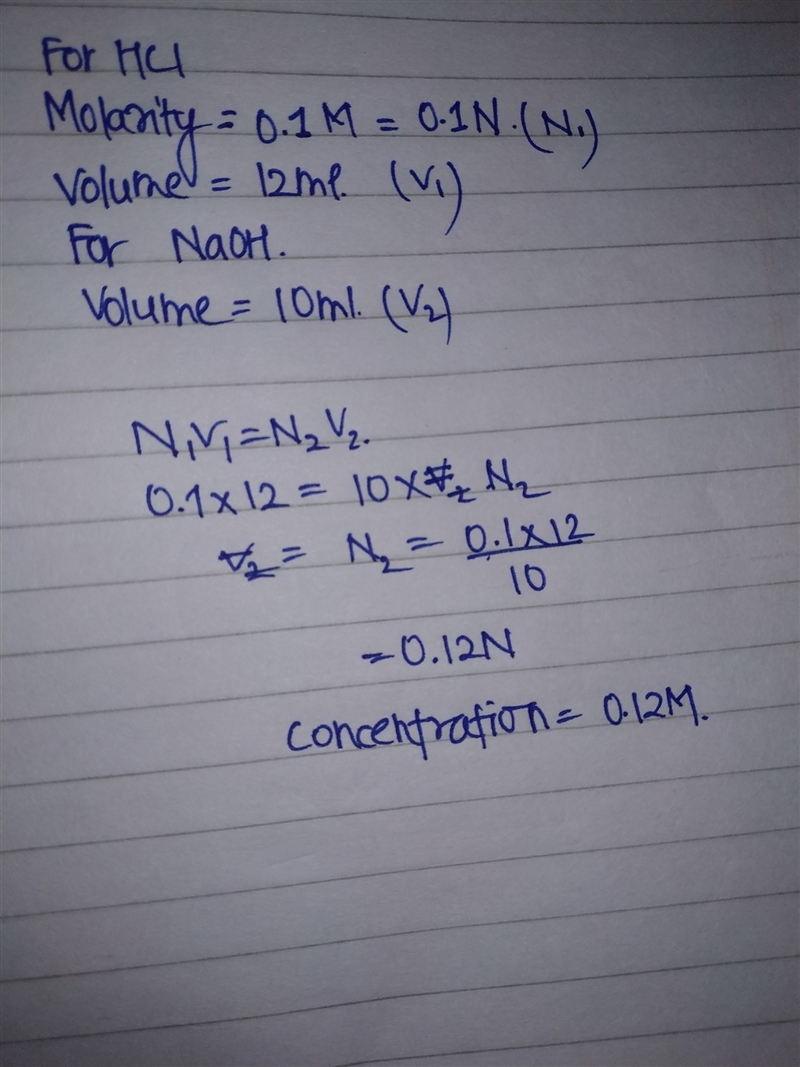 For HCl
Molarity = 0.1M = 0.1N. (N₁)
Volume = 12ml. (V₁)
For NaOH.
Volume = 10ml. (V₂)
N₁V₁ = N₂V₂.
0.1 x 12 = 10 x V₂ N₂
V₂ = N₂ = 0.1 x 12
10
= 0.12N
Concentration = 0.12M.